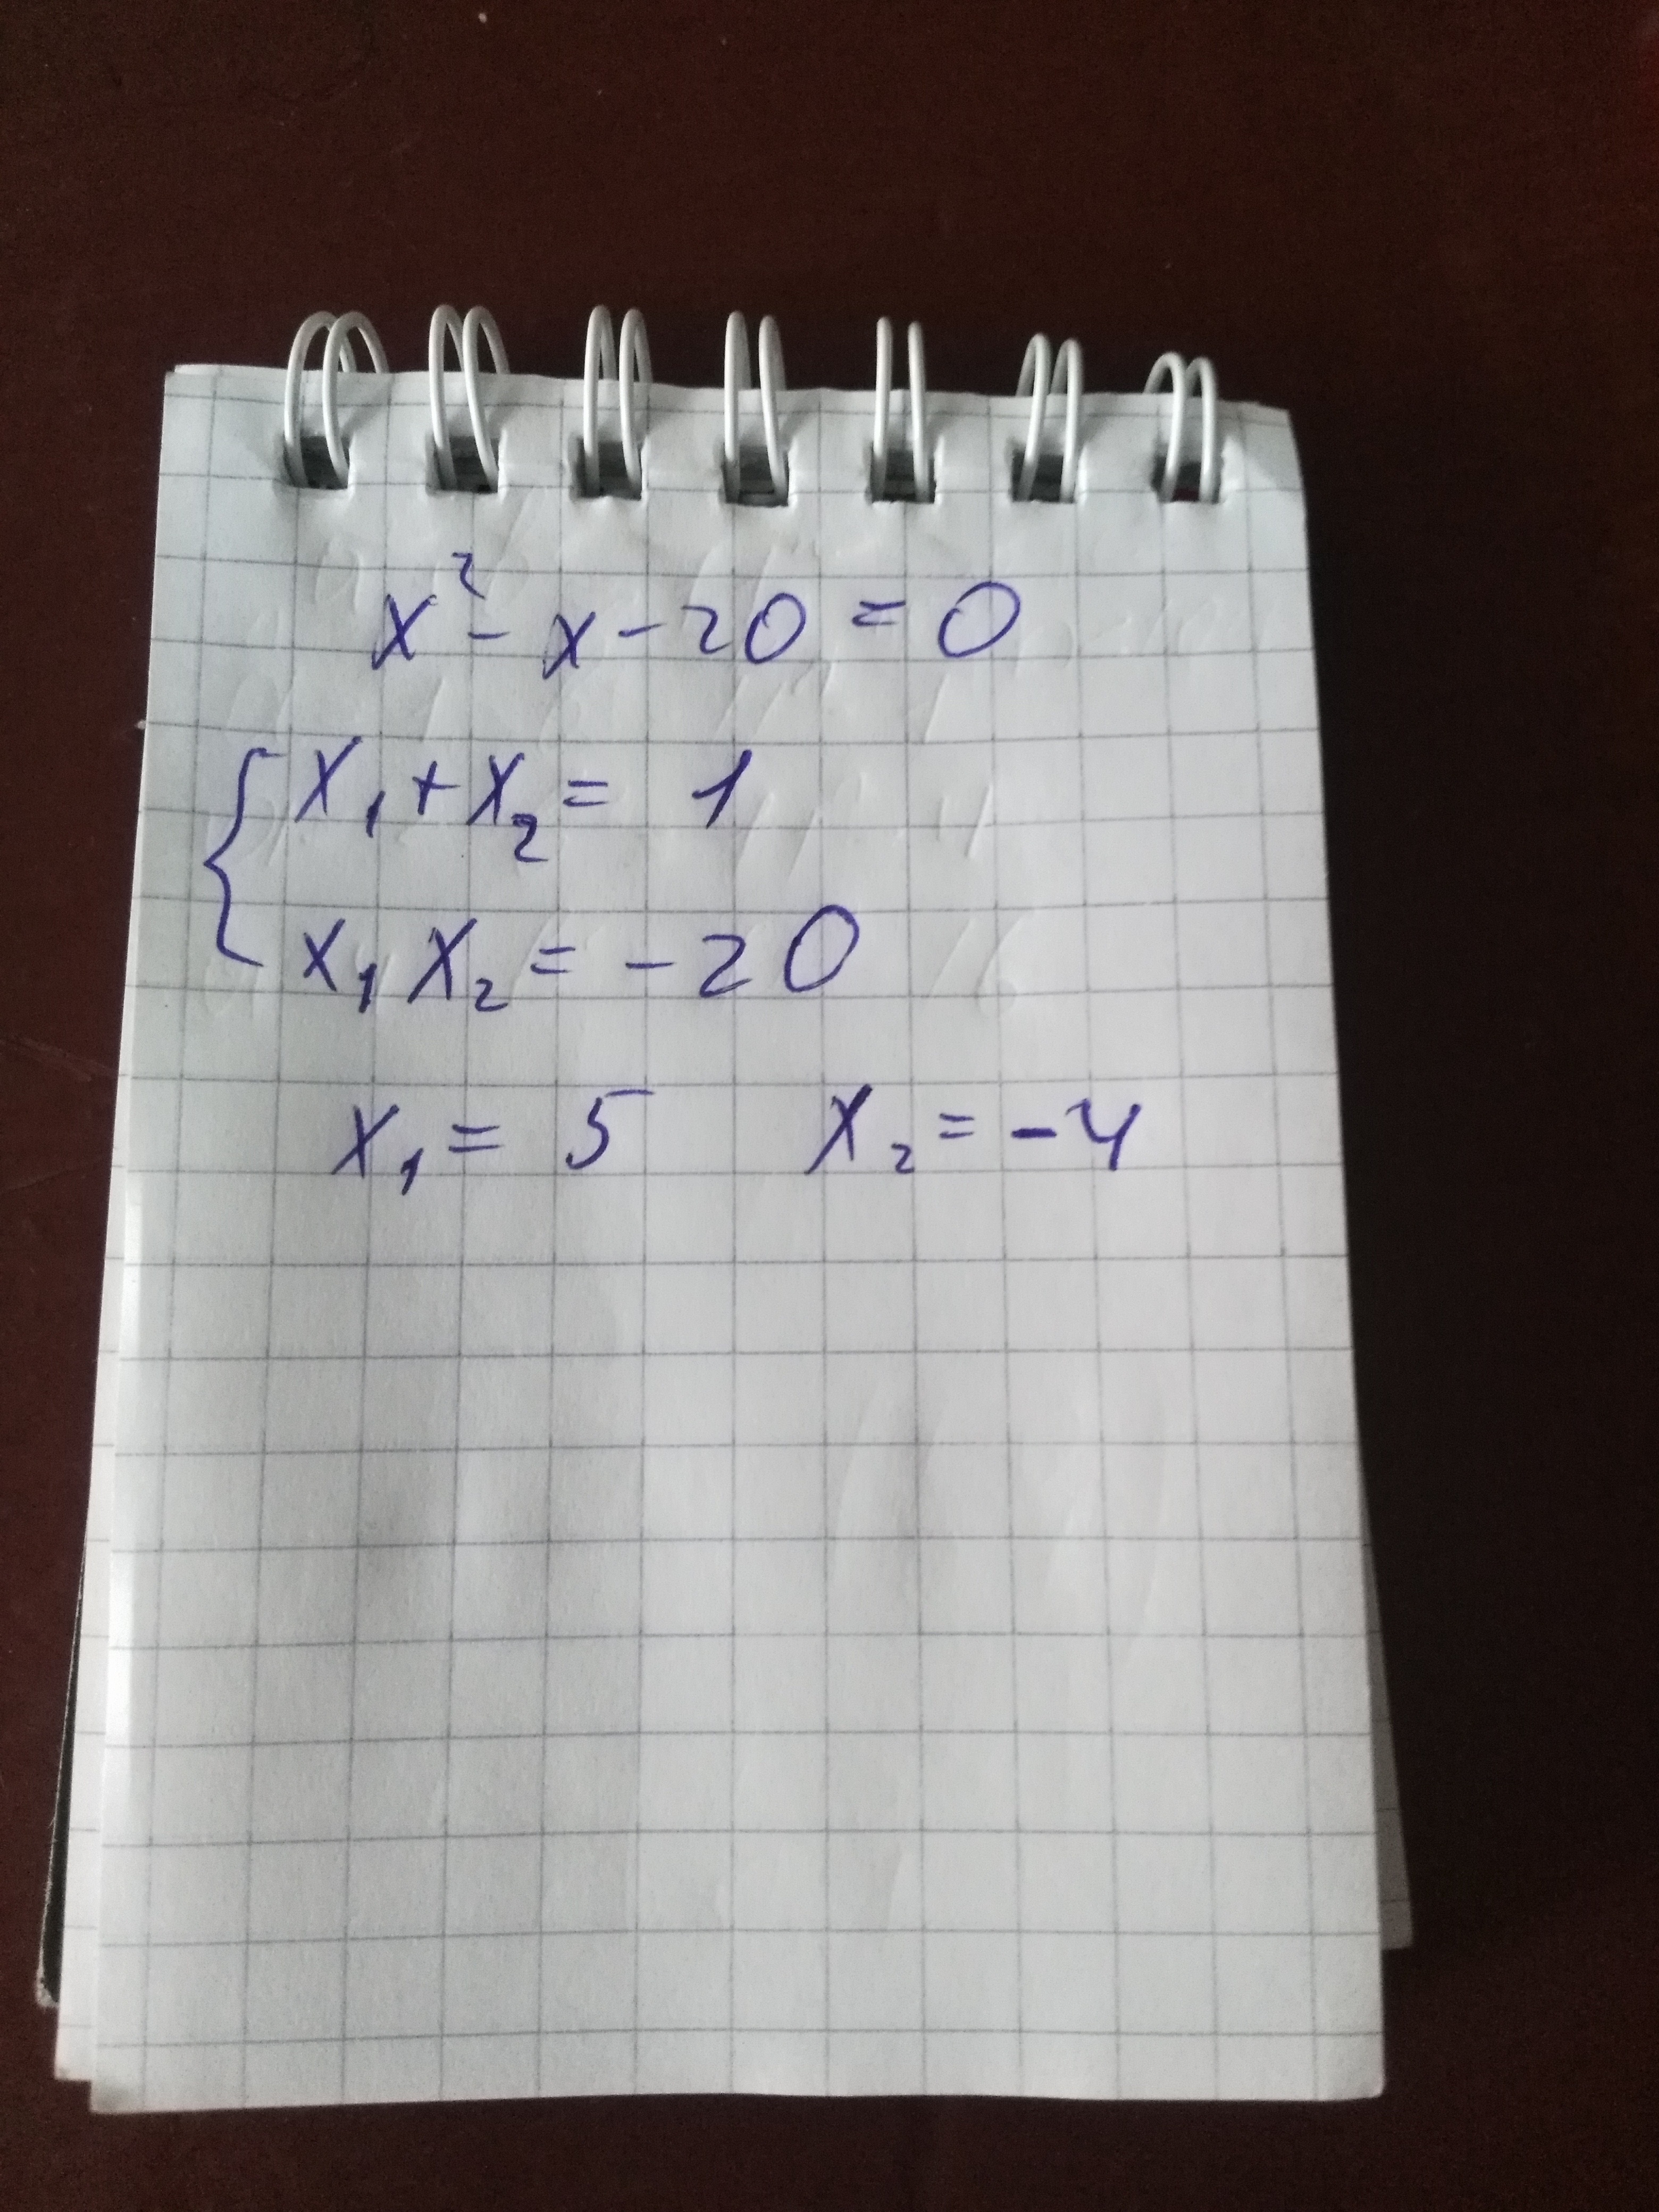 x² - x - 20 = 0
x₁ + x₂ = 1
x₁ x₂ = -20
x₁ = 5 x₂ = -4